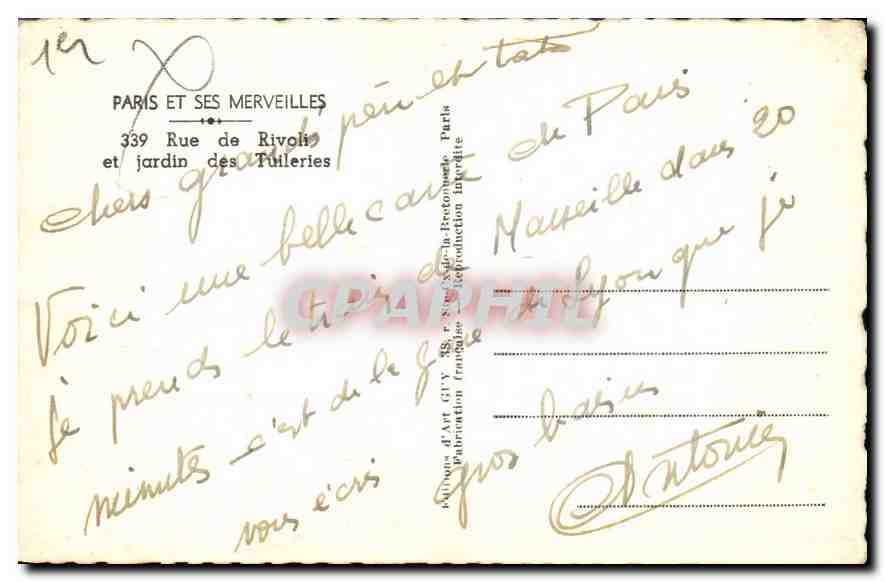 1er
PARIS ET SES MERVEILLES
339 Rue de Rivoli
et jardin des Tuileries
chers grands père et tata
Voici une belle carte de Paris
je prends le train de Marseille dans 20
minutes c'est de la gare de Lyon que je
vous écris gros baisers
Antonin
Editions d'Art GUY 38, r. Ste-Cx-de-la-Bretonnerie Paris
Fabrication française — Reproduction interdite
CPAPHIL